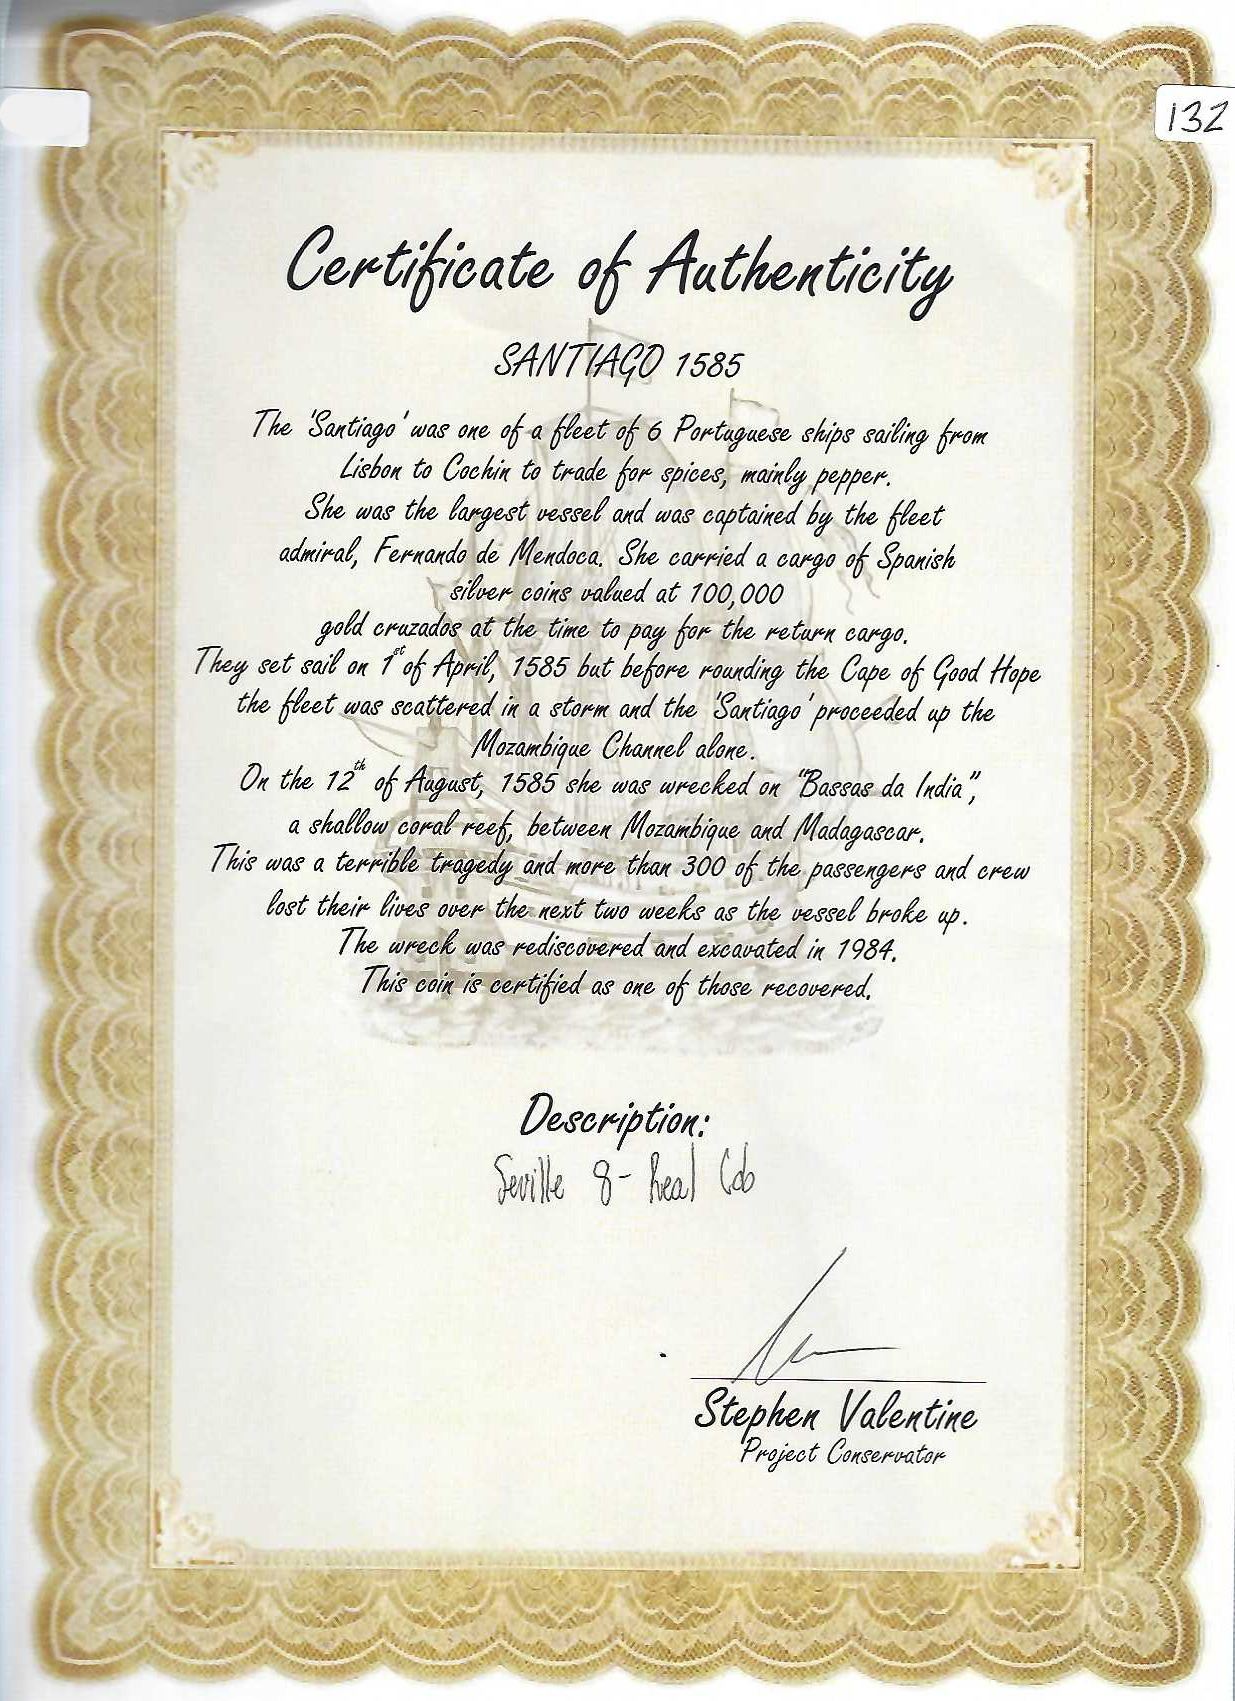 132
Certificate of Authenticity
SANTIAGO 1585
The 'Santiago' was one of a fleet of 6 Portuguese ships sailing from
Lisbon to Cochin to trade for spices, mainly pepper.
She was the largest vessel and was captained by the fleet
admiral, Fernando de Mendoca. She carried a cargo of Spanish
silver coins valued at 100,000
gold cruzados at the time to pay for the return cargo.
They set sail on 1st of April, 1585 but before rounding the Cape of Good Hope
the fleet was scattered in a storm and the 'Santiago' proceeded up the
Mozambique Channel alone.
On the 12th of August, 1585 she was wrecked on "Bassas da India",
a shallow coral reef, between Mozambique and Madagascar.
This was a terrible tragedy and more than 300 of the passengers and crew
lost their lives over the next two weeks as the vessel broke up.
The wreck was rediscovered and excavated in 1984.
This coin is certified as one of those recovered.
Description:
Seville 8-Real Cob
Stephen Valentine
Project Conservator